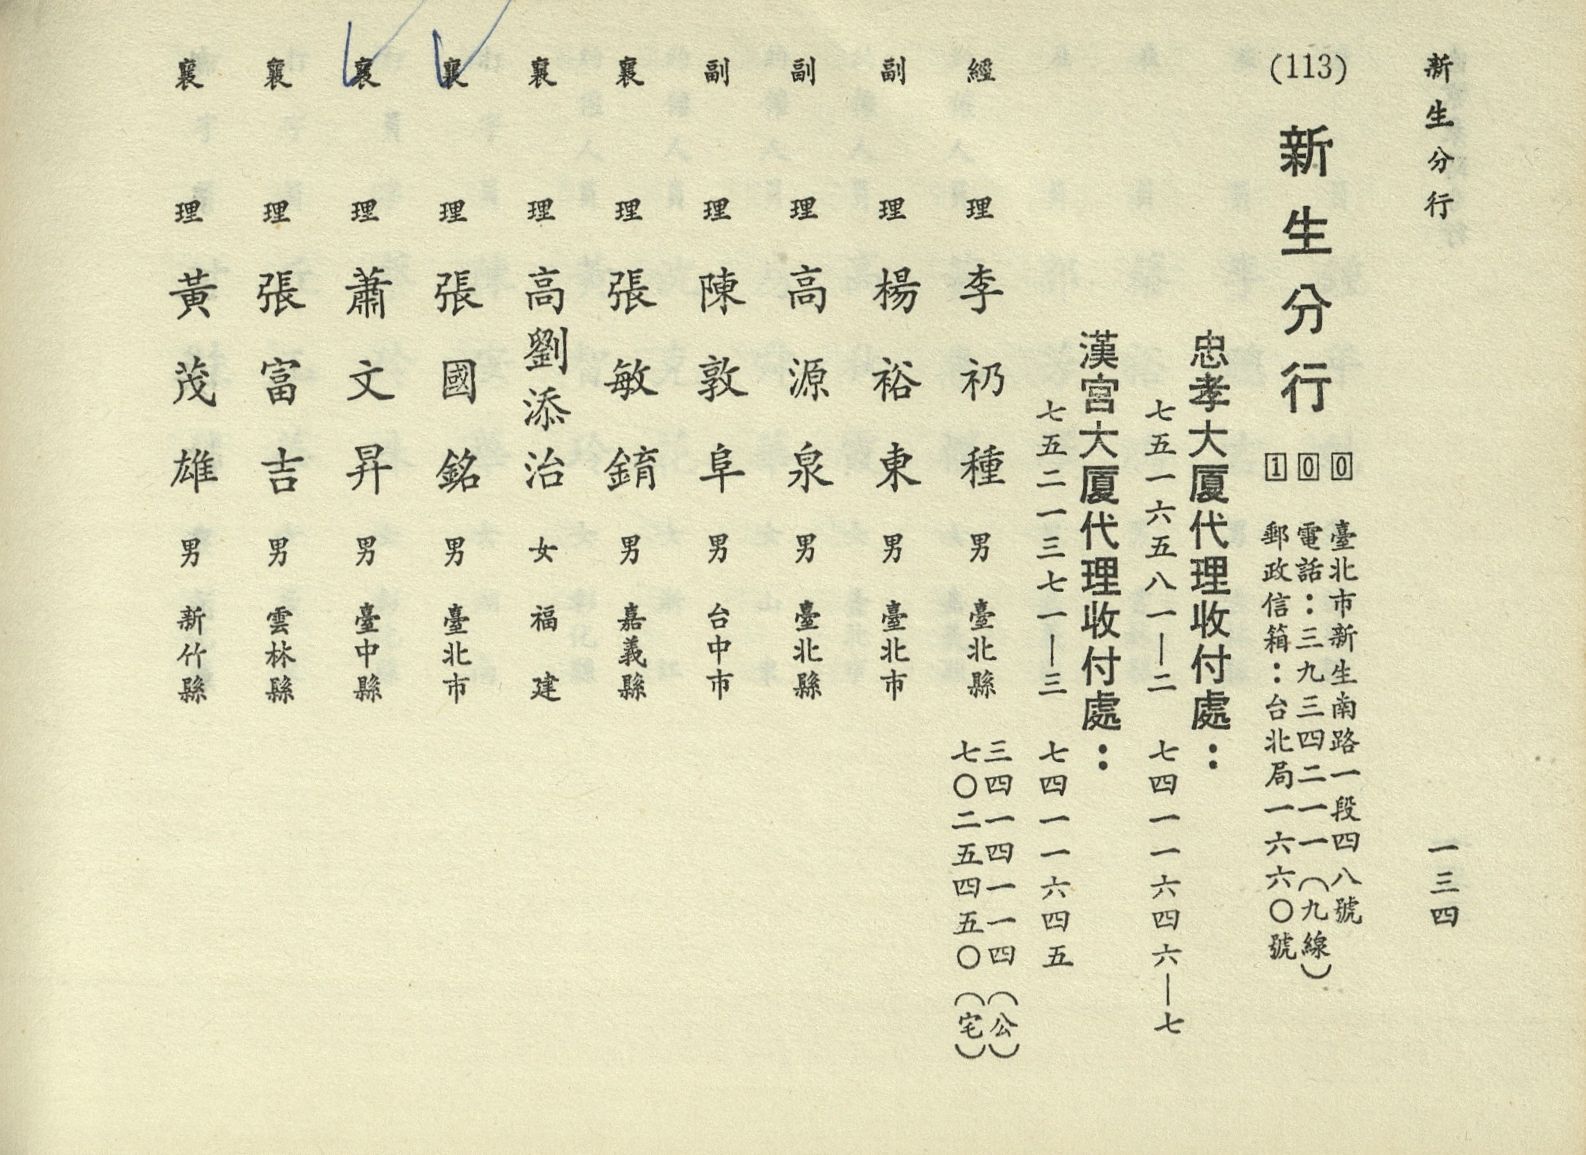 新生分行
一三四
(113) 新生分行
100
臺北市新生南路一段四八號
電話：三九三四二一一（九線）
郵政信箱：台北局一六六〇號
忠孝大厦代理收付處：
七五一六五八一—二 七四一一六四六—七
漢宮大厦代理收付處：
七五二一三七一—三 七四一一六四五
經理 李礽種 男 臺北縣 三四一四一一四（公）
七〇二五四五〇（宅）
副理 楊裕東 男 臺北市
副理 高源泉 男 臺北縣
副理 陳敦阜 男 台中市
襄理 張敏錥 男 嘉義縣
襄理 高劉添治 女 福建
襄理 張國銘 男 臺北市
襄理 蕭文昇 男 臺中縣
襄理 張富吉 男 雲林縣
襄理 黃茂雄 男 新竹縣